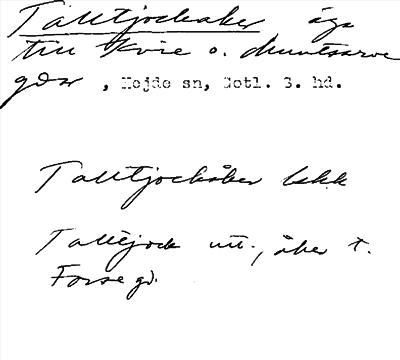 Talltjockaker äga
till Kvie o. Muntsarve
gdar, Hejde sn, Gotl. S. hd.
Talltjockåker Ekk
Talltjock utt., åker t.
Forse gd.